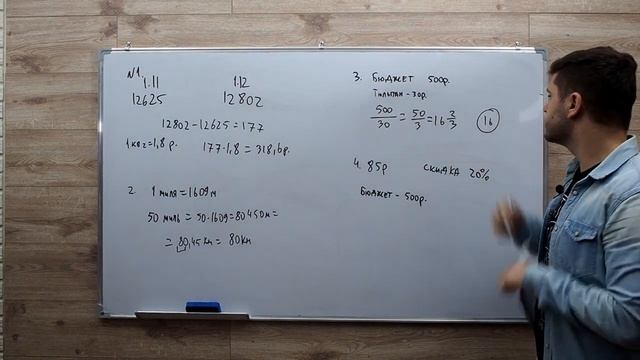 N1.
1.11 1.12
12625 12802
12802-12625=177
1 кВт=1,8 р. 177·1,8=318,6р.
2. 1 миля=1609м
50 миль = 50·1609=80450м=
= 80,45км = 80км
3. Бюджет 500р.
Тюльпан - 30р.
500/30 = 50/3 = 16 2/3 16
4. 85р скидка 20%
Бюджет - 500р.